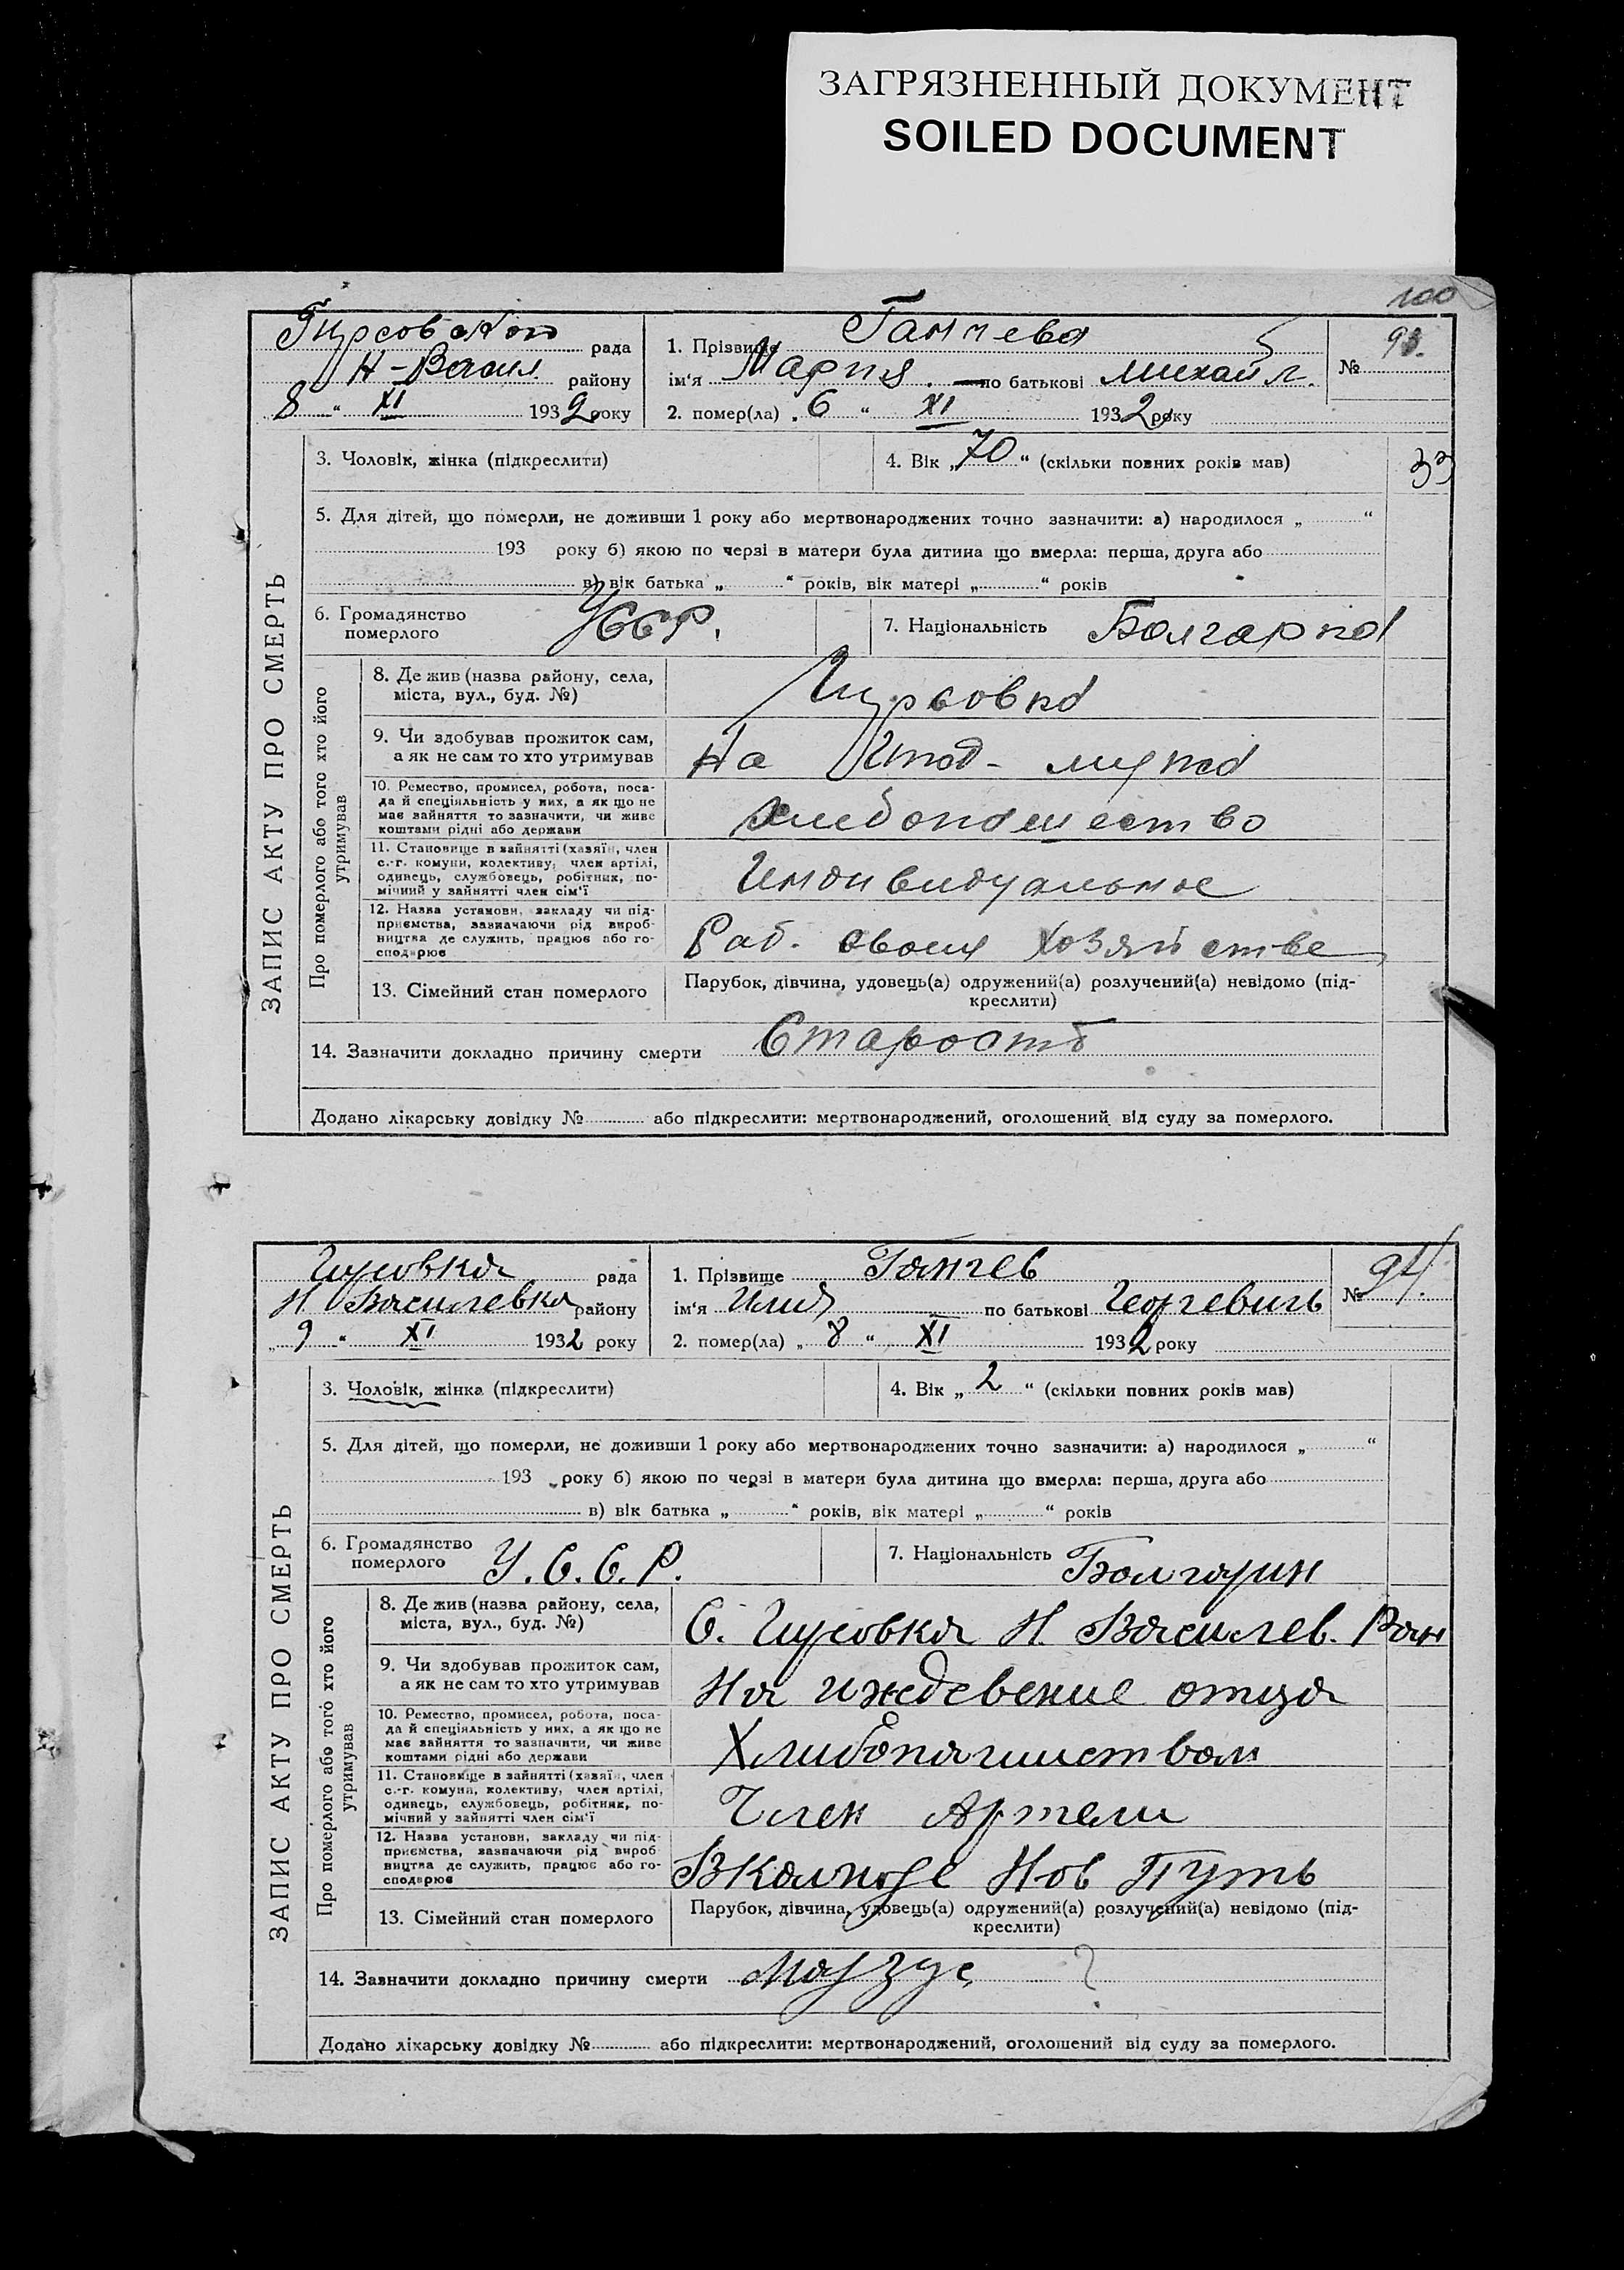 ЗАГРЯЗНЕННЫЙ ДОКУМЕНТ
SOILED DOCUMENT
100
Гирсовской рада
Н-Васил району
8 " XI 1932 року
1. Прізвище Ганчева
ім'я Мария по батькові Михайл.
2. помер(ла) „6 " XI 1932 року
№ 93.
ЗАПИС АКТУ ПРО СМЕРТЬ
3. Чоловік, жінка (підкреслити)
4. Вік „70" (скільки повних років мав)
33
5. Для дітей, що померли, не доживши 1 року або мертвонароджених точно зазначити: а) народилося „ "
193 року б) якою по черзі в матери була дитина що вмерла: перша, друга або
в) вік батька „ " років, вік матері „ " років
6. Громадянство
померлого
УССР.
7. Національність Болгарка
Про померлого або того хто його
утримував
8. Де жив (назва району, села,
міста, вул., буд. №)
Гирсовка
9. Чи здобував прожиток сам,
а як не сам то хто утримував
На мужа
10. Ремество, промисел, робота, поса-
да й спеціяльність у них, а як що не
має зайняття то зазначити, чи живе
коштами рідні або держави
Хлебопашество
11. Становище в зайнятті (хазяїн, член
с.-г. комуни, колективу, член артілі,
одинець, службовець, робітник, по-
мічний у зайнятті член сім'ї
Индивидуальное
12. Назва установи, закладу чи під-
приємства, зазначаючи рід вироб-
ництва де служить, працює або го-
сподарює
Раб. своем хозяйстве
13. Сімейний стан померлого
Парубок, дівчина, удовець(а) одружений(а) розлучений(а) невідомо (під-
креслити)
14. Зазначити докладно причину смерти Старость
Додано лікарську довідку № або підкреслити: мертвонароджений, оголошений від суду за померлого.
Гирсовка рада
Н. Василевка району
„9 " XI 1932 року
1. Прізвище Ганчев
ім'я Илия по батькові Георгевичь
2. помер(ла) „8 " XI 1932 року
№ 94.
ЗАПИС АКТУ ПРО СМЕРТЬ
3. Чоловік, жінка (підкреслити)
4. Вік „2" (скільки повних років мав)
5. Для дітей, що померли, не доживши 1 року або мертвонароджених точно зазначити: а) народилося „ "
193 року б) якою по черзі в матери була дитина що вмерла: перша, друга або
в) вік батька „ " років, вік матері „ " років
6. Громадянство
померлого
У.С.С.Р.
7. Національність Болгарин
Про померлого або того хто його
утримував
8. Де жив (назва району, села,
міста, вул., буд. №)
С. Гирсовка Н. Василев. Ран
9. Чи здобував прожиток сам,
а як не сам то хто утримував
На иждевение отца
10. Ремество, промисел, робота, поса-
да й спеціяльність у них, а як що не
має зайняття то зазначити, чи живе
коштами рідні або держави
11. Становище в зайнятті (хазяїн, член
с.-г. комуни, колективу, член артілі,
одинець, службовець, робітник, по-
мічний у зайнятті член сім'ї
Член Артели
12. Назва установи, закладу чи під-
приємства, зазначаючи рід вироб
ництва де служить, працює або го-
сподарює
Нов Путь
13. Сімейний стан померлого
Парубок, дівчина, удовець(а) одружений(а) розлучений(а) невідомо (під-
креслити)
14. Зазначити докладно причину смерти ?
Додано лікарську довідку № або підкреслити: мертвонароджений, оголошений від суду за померлого.